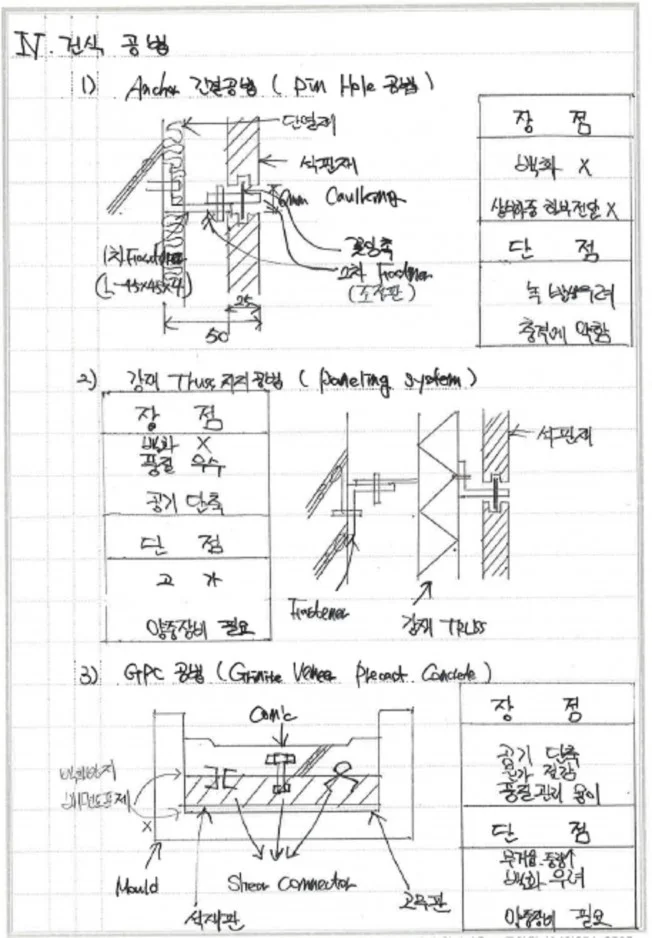 Ⅳ. 건식 공법
1) Anchor 긴결공법 ( Pin Hole 공법 )
단열재
석판재
8mm Caulking
꽂임촉
2차 Fastener
(조정판)
1차 Fastener
(L-45x45x4)
25
50
장 점
백화 X
상부하중 하부전달 X
단 점
녹 발생우려
충격에 약함
2) 강재 Truss 지지공법 ( Paneling System )
장 점
백화 X
품질 우수
공기 단축
단 점
고 가
양중장비 필요
석판재
Fastener
강재 TRUSS
3) GPC 공법 ( Granite Veneer Precast Concrete )
Con'c
백화방지
배면도포제
X
Mould
석재판
Shear Connector
고무판
장 점
공기 단축
원가 절감
품질관리 용이
단 점
무거움
백화 우려
양중장비 필요